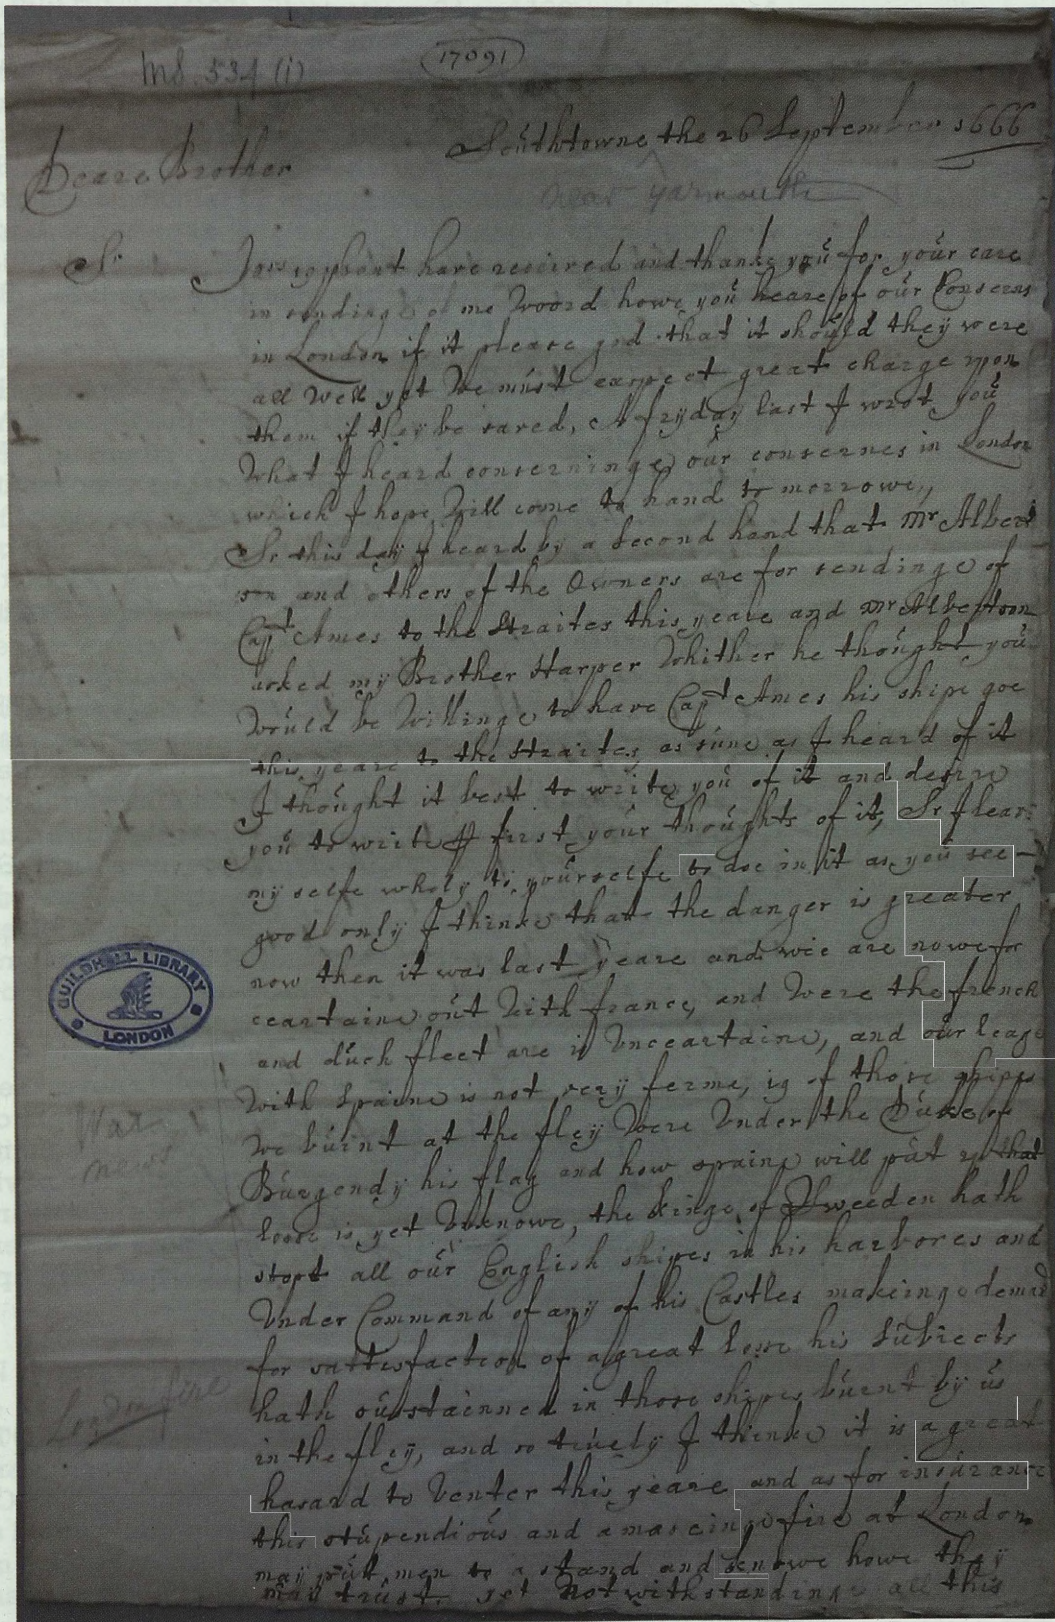 Ms. 534 (i)
17091
Southtowne the 26 September 1666
Deare Brother
near Yarmouth
Sr
Yors present have received and thanke you for your care
in sending of me woord howe you heare of our Conserns
in London if it please god that it should they were
all well yet we must expect great charge upon
them if they be saved, A fryday last I wrot you
What I heard conserninge our consernes in London
which I hope will come to hand to morrowe,
Sr this day I heard by a second hand that Mr Albert
son and others of the Owners are for sendinge of
Capt Ames to the Straites this yeare and Mr Albertson
asked my Brother Harper Whither he thought you
Would be Willinge to have Capt Ames his shipe goe
this yeare to the Straites, as sune as I heard of it
I thought it best to write you of it and desire
you to write first your thoughts of it, Sr I leave
my selfe wholy to yourselfe to doe in it as you see
good only I thinke that the danger is greater
now then it was last yeare and wee are nowe for
ceartaine out with france, and were the french
and duch fleet are is Unceartaine, and our leage
With Spaine is not very ferme, 19 of those shipes
We burnt at the fley Were Under the Duke of
Burgendy his flag and how spaine will put up that
losse is yet Unknowe, the Kinge of Sweeden hath
stopt all our English shipes in his harbores and
Under Command of any of his Castles makeinge demand
for sattesfaction of a great losse his Subiects
hath sustained in those shipes burnt by us
in the fley, and so truely I thinke it is a great
hasard to Venter this yeare and as for insurance
this stupendious and amaseinge fire at London
may put men to a stand and knowe howe they
may trust, yet Notwithstandinge all this
GUILDHALL LIBRARY
LONDON
War
news
London fire